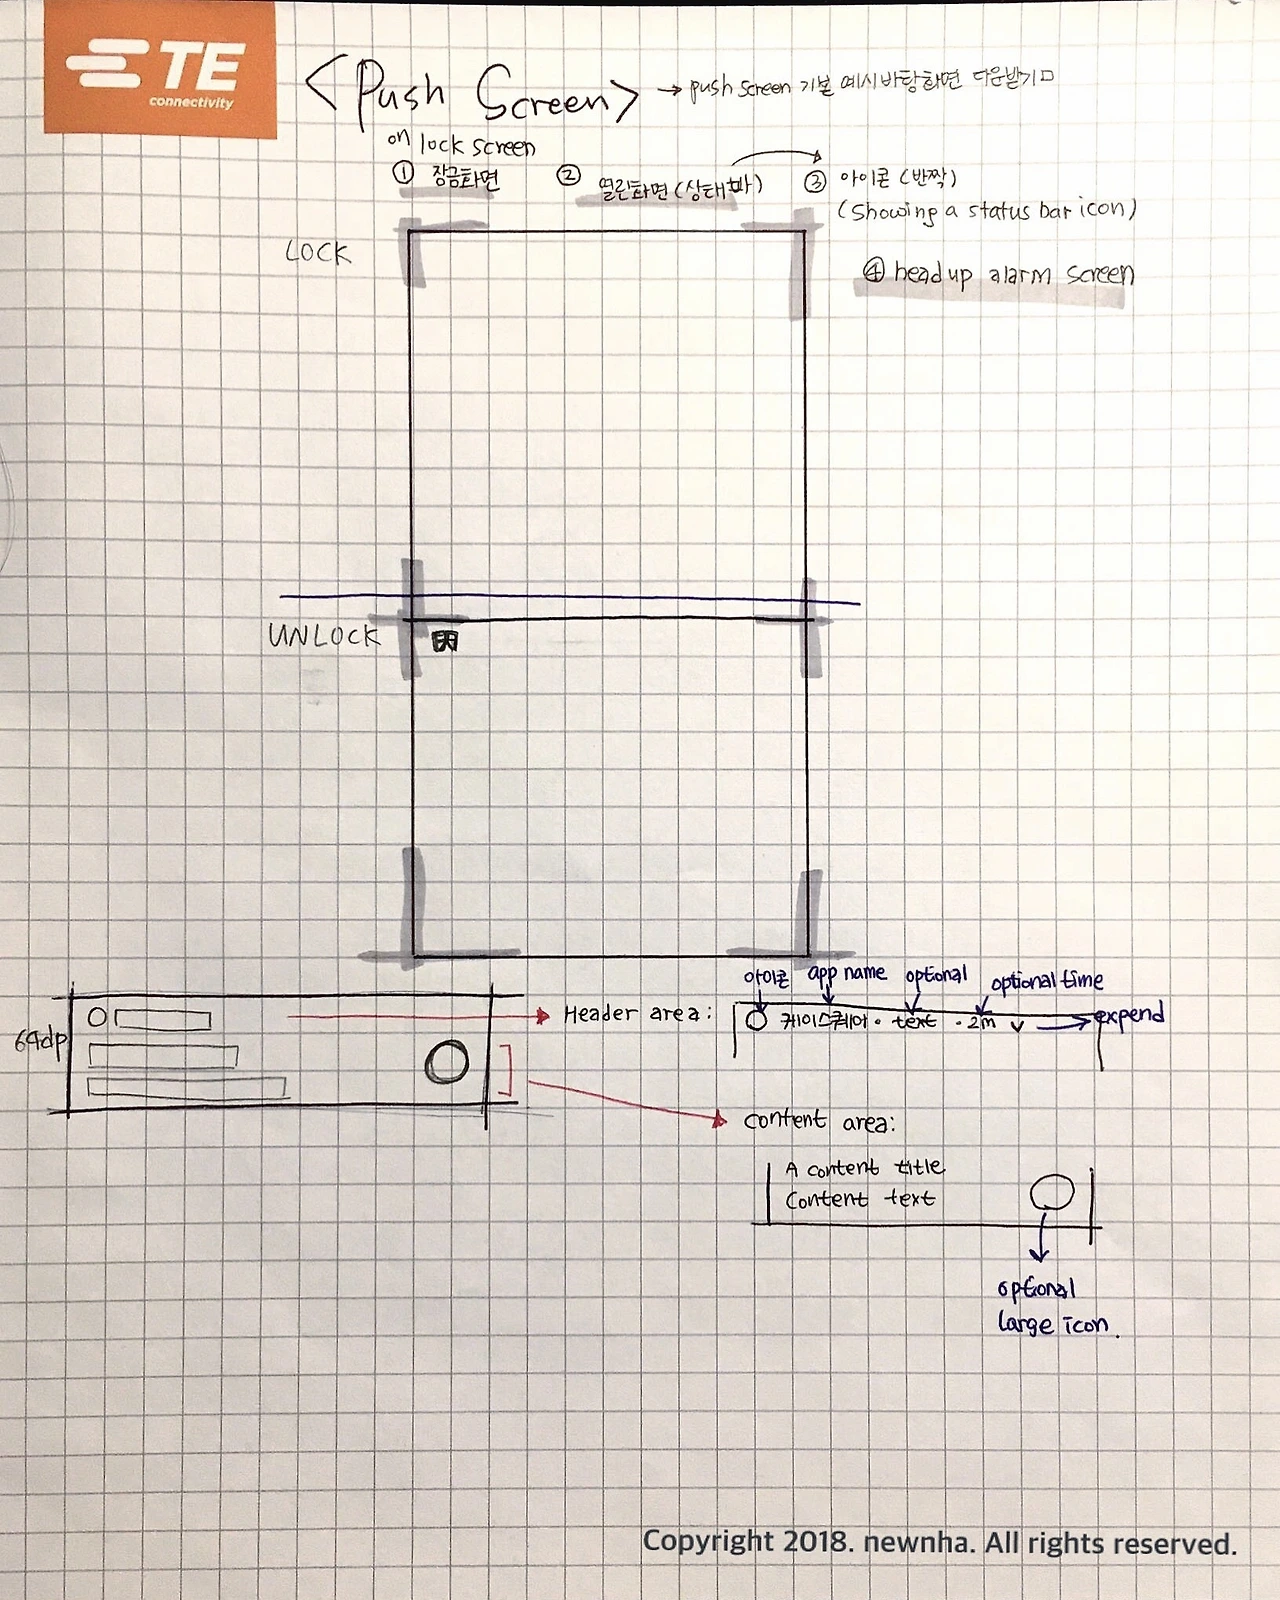 TE
connectivity
<Push Screen> → push screen 기본 예시 바탕화면 다운받기 □
on lock screen
① 잠금화면 ② 열린화면(상태바) ③ 아이콘 (반짝)
(showing a status bar icon)
④ head up alarm screen
LOCK
UNLOCK
64dp
Header area:
아이콘 app name optional optional time
케이스퀘어 · text · 2m ∨ → expend
Content area:
A content title
Content text
optional
large icon.
Copyright 2018. newnha. All rights reserved.